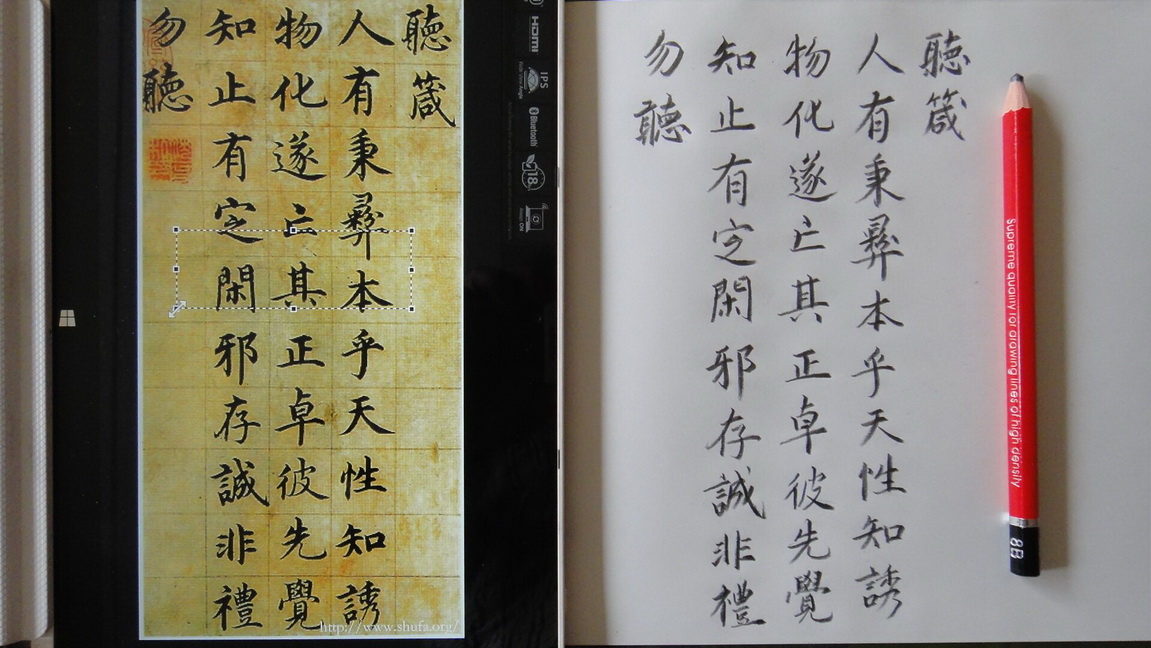 聽箴
人有秉彞本乎天性知誘
物化遂亡其正卓彼先覺
知止有定閑邪存誠非禮
勿聽
http://www.shufa.org/
HDMI
IPS
Bluetooth
18
聽箴
人有秉彞本乎天性知誘
物化遂亡其正卓彼先覺
知止有定閑邪存誠非禮
勿聽
Supreme quality for drawing lines of high density
8B